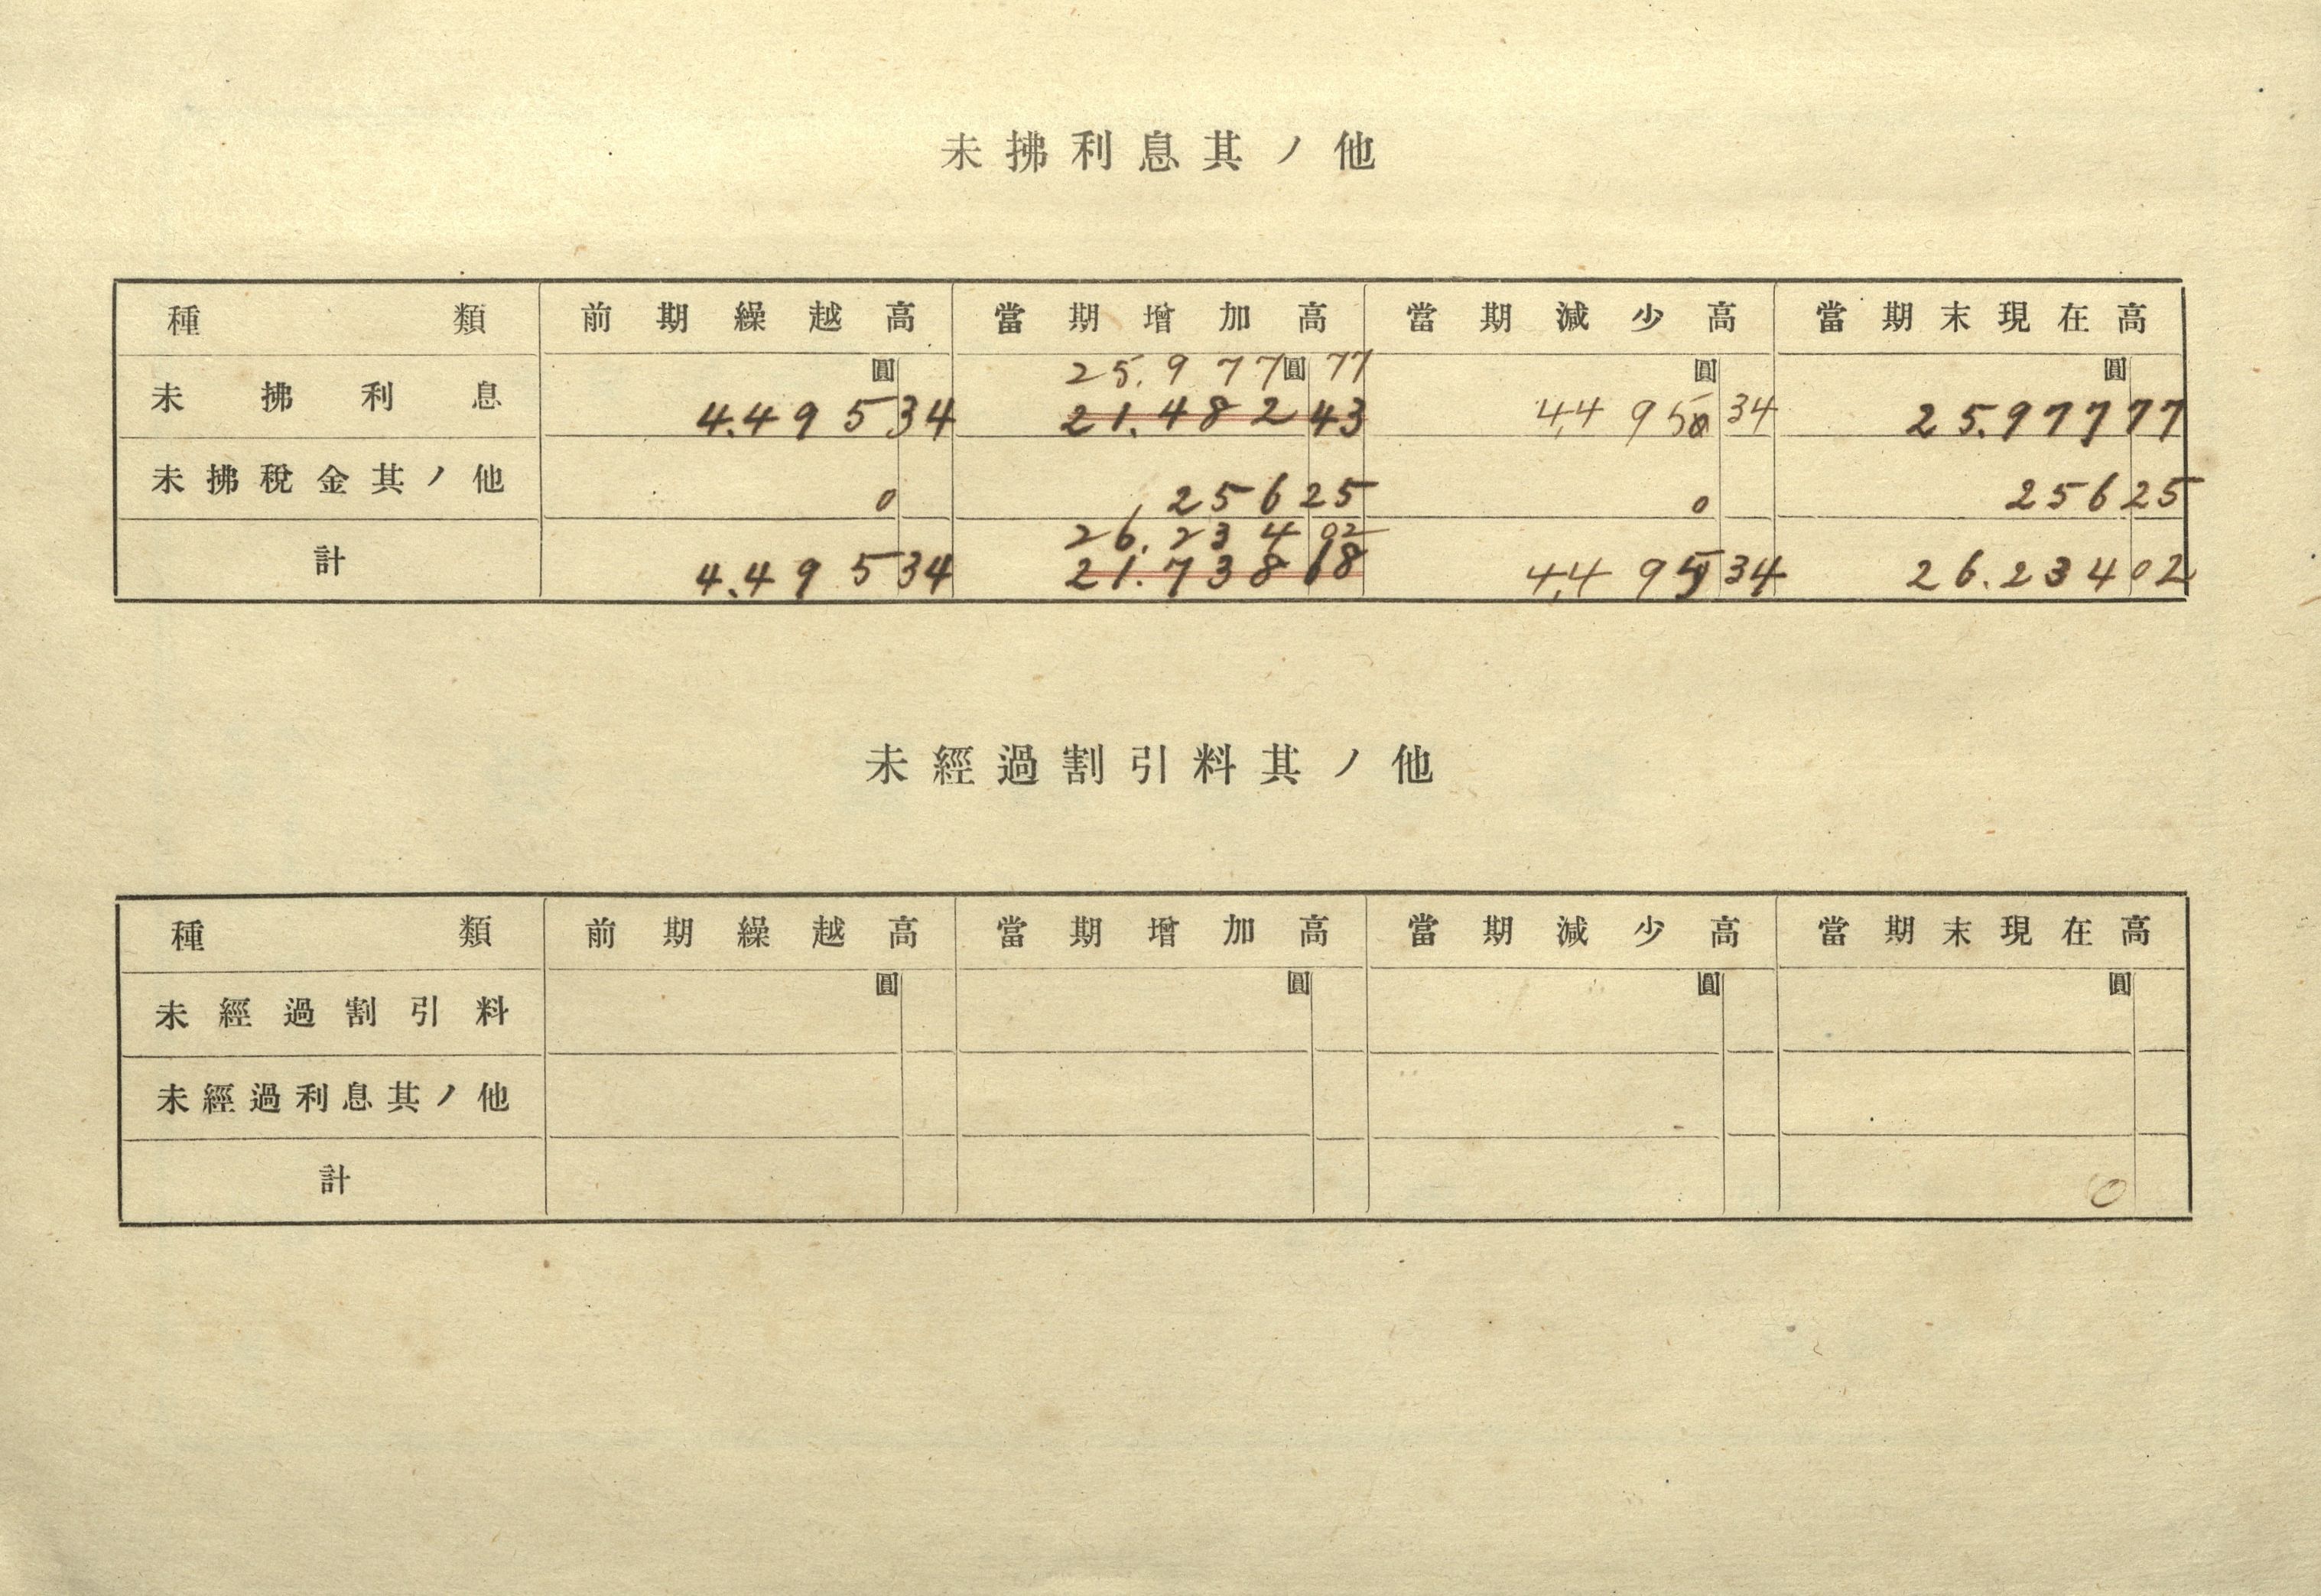 未拂利息其ノ他
種類 前期繰越高 當期增加高 當期減少高 當期末現在高
圓 25.977圓77 圓 圓
未拂利息 4.49534 21.48243 4,49534 25.97777
未拂稅金其ノ他 0 25625 0 25625
26.23402
計 4.49534 21.73868 4,49534 26.23402
未經過割引料其ノ他
種類 前期繰越高 當期增加高 當期減少高 當期末現在高
圓 圓 圓 圓
未經過割引料
未經過利息其ノ他
計 0